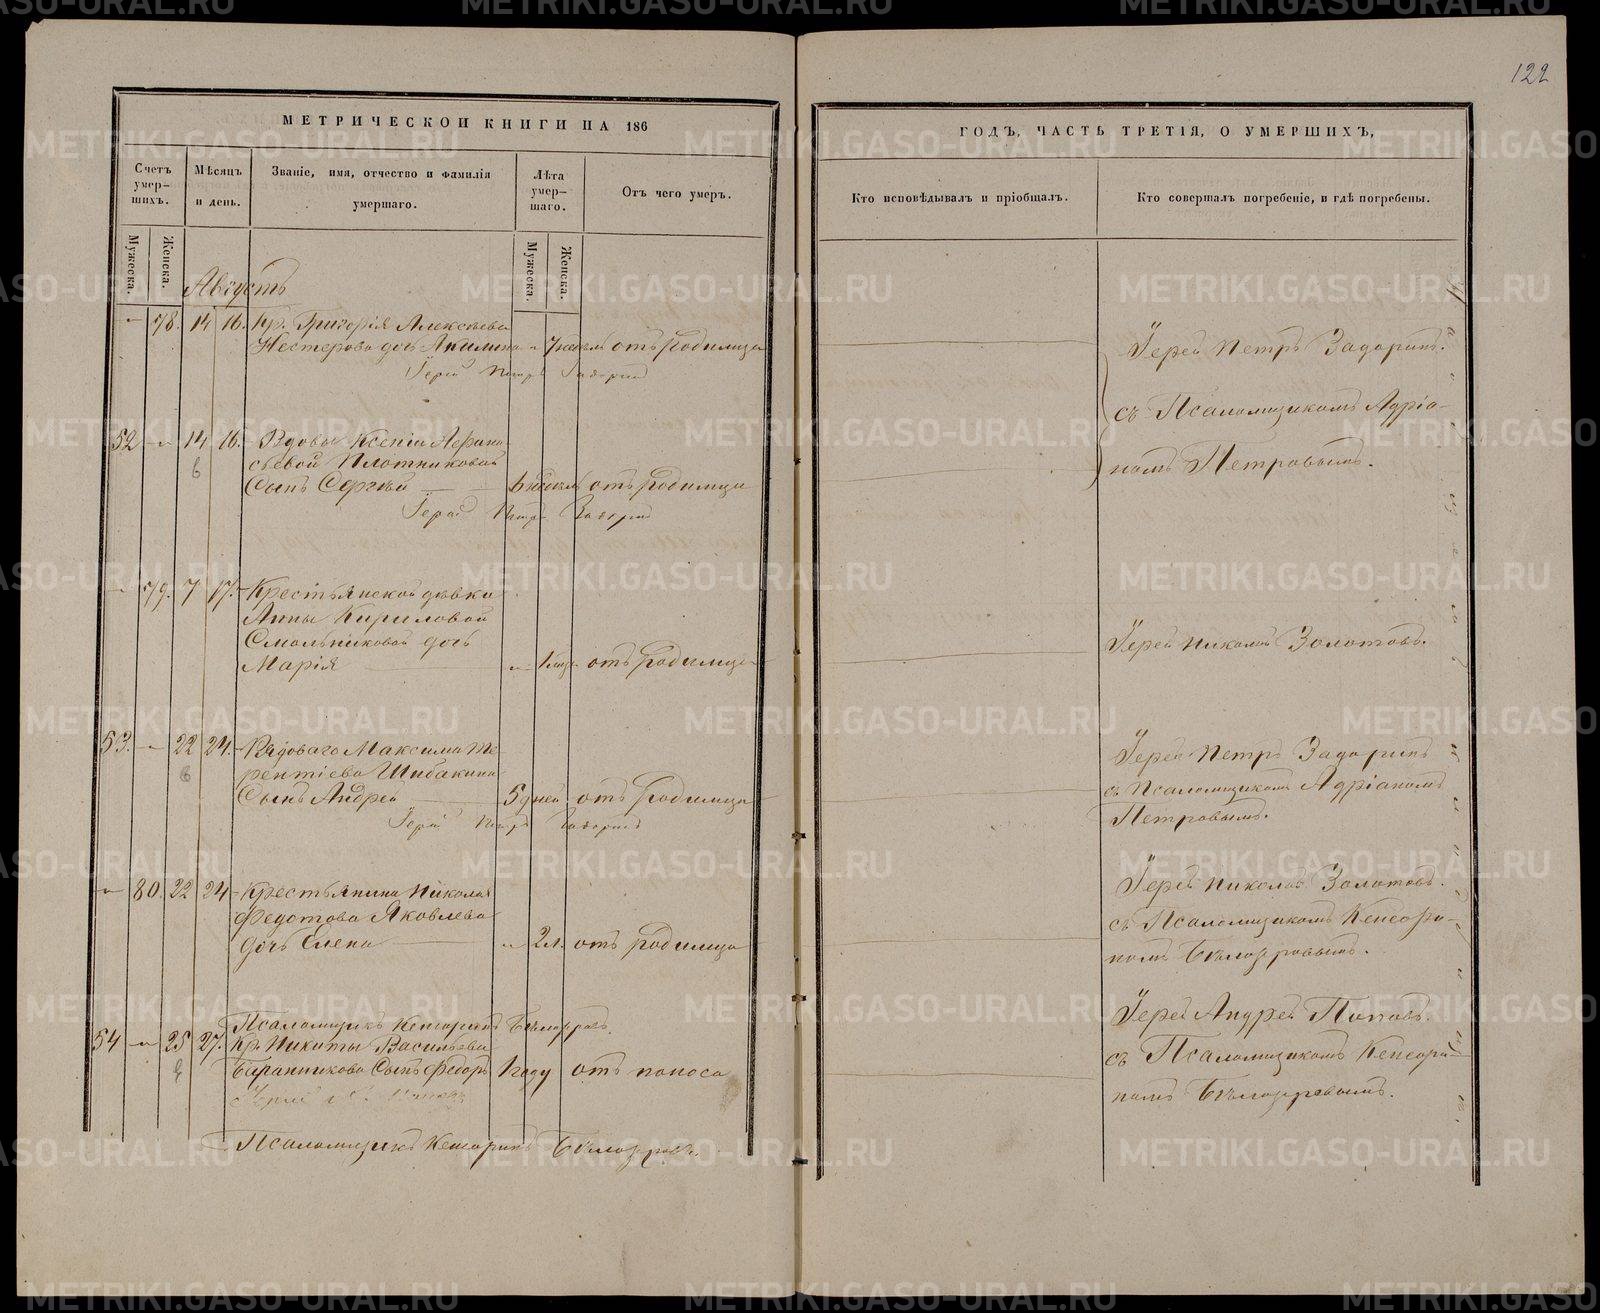 122
МЕТРИЧЕСКОЙ КНИГИ НА 186
Счетъ умер-шихъ.
Мѣсяцъ и день.
Званіе, имя, отчество и фамилія умершаго.
Лѣта умер-шаго.
Отъ чего умеръ.
Мужеска.
Женска.
Мужеска.
Женска.
Августъ
— 78. 14 16. Кр. Григорія Алексѣева
Нестерова дочь Акилина — 7 недѣль отъ родимца
Іерей Петръ Задоринъ
52 — 14 16. Вдовы Ксеніи Афана-
сьевой Плотниковой
Сынъ Сергѣй — 6 недѣль отъ родимца
Іерей Петръ Задоринъ
— 79. 7 17. Крестьянской дѣвки
Анны Кириловой
Смольниковой дочь
Марія — отъ родимца
53. — 22 24. Рядоваго Максима Те-
рентіева Шибакина
Сынъ Андрей — 5 дней отъ родимца
Іерей Петръ Задоринъ
— 80. 22 24 Крестьянина Николая
Федотова Яковлева
дочь Елена — 2 л. отъ родимца
Псаломщикъ Кенсоринъ Бѣлозеровъ.
54 — 25 27. Кр. Никиты Васильева
Баранникова Сынъ Федоръ 1 году отъ поноса
Псаломщикъ Кенсоринъ Бѣлозеровъ.
ГОДЪ, ЧАСТЬ ТРЕТІЯ, О УМЕРШИХЪ,
Кто исповѣдывалъ и пріобщалъ.
Кто совершалъ погребеніе, и гдѣ погребены.
Іерей Петръ Задоринъ.
съ Псаломщикомъ Адріа-
номъ Петровымъ.
Іерей Николай Золотовъ.
Іерей Петръ Задоринъ
съ Псаломщикомъ Адріаномъ
Петровымъ.
Іерей Николай Золотовъ.
съ Псаломщикомъ Кенсори-
номъ Бѣлозеровымъ.
Іерей Андрей Поповъ.
съ Псаломщикомъ Кенсори-
номъ Бѣлозеровымъ.
METRIKI.GASO-URAL.RU